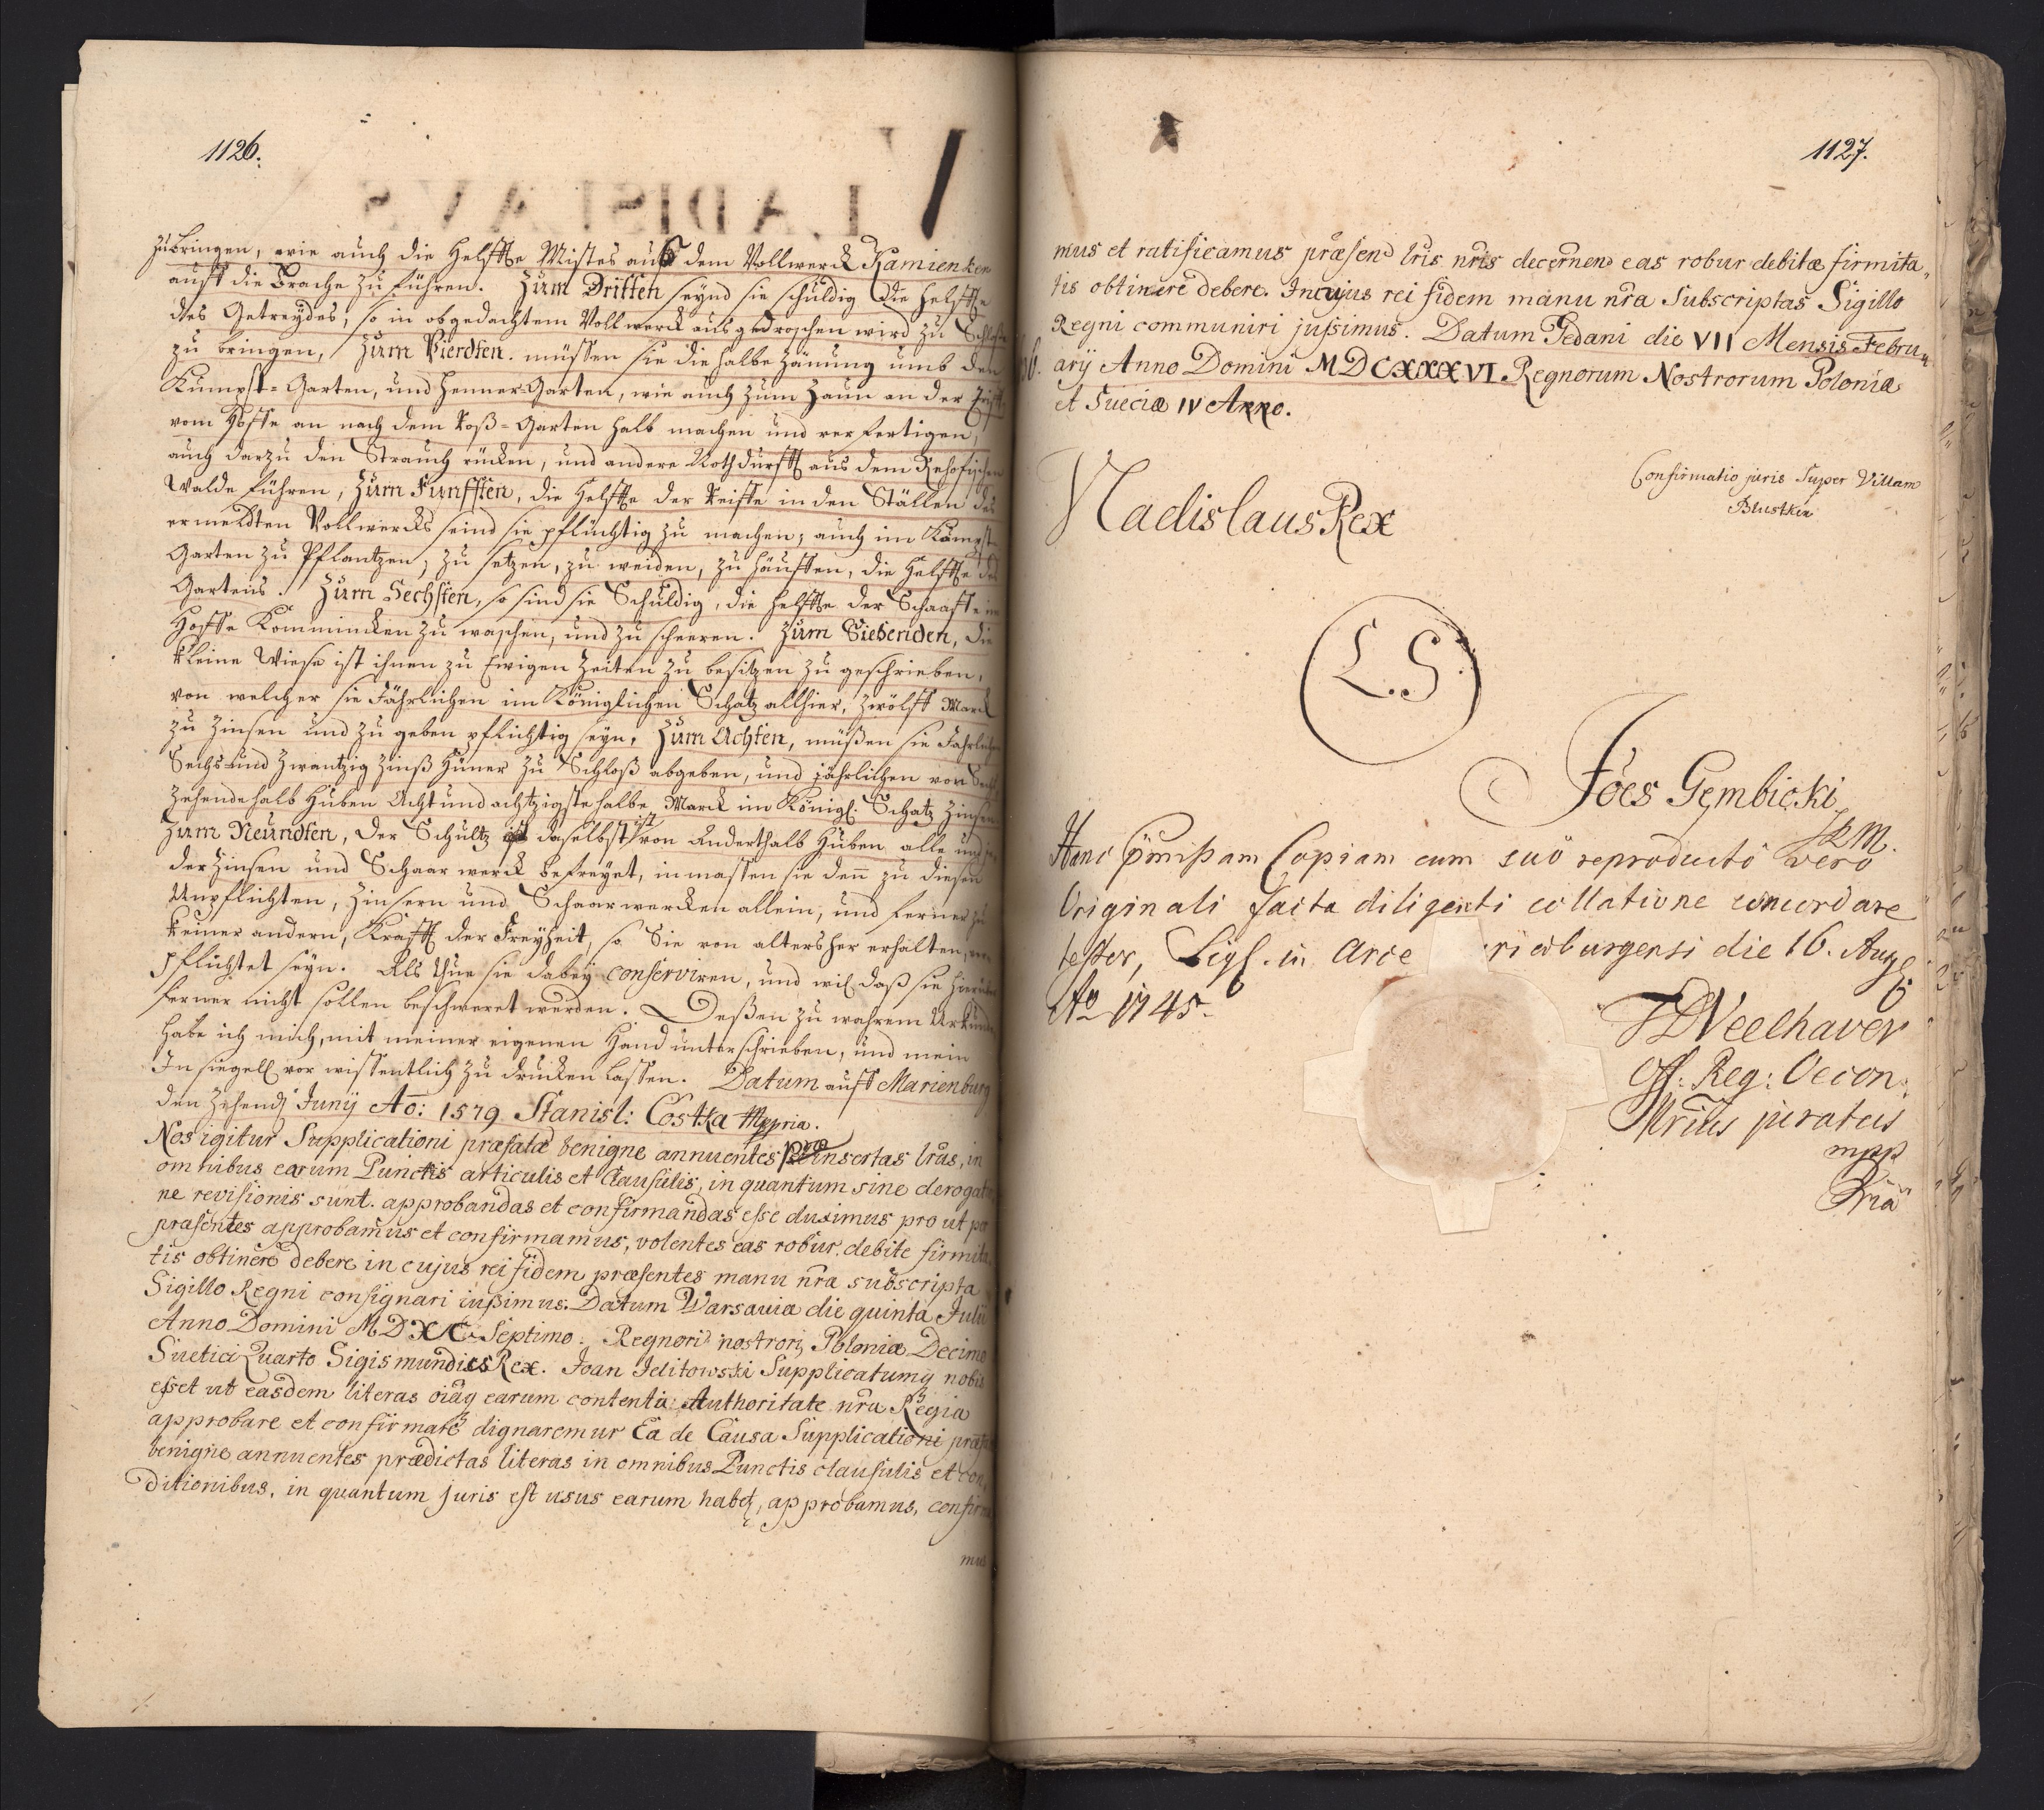 1126.
zubringen, wie auch die Helffte Mistes aus dem Vollwerck Kamienken
auff die Brache zu führen. Zum Dritten seynd sie schuldig die Helffte
des Getreydes, so in obgedachtem Vollwerck ausgedroschen wird zu Schloß
zu bringen, Zum Vierdten. müssen sie die halbe Zäunung umb den
Kumpst-Garten, und Henner-Garten, wie auch zum Zaun an der
vom Hoffe an nach dem Roß-Garten halb machen und verfertigen,
auch darzu den Strauch rücken, und andere Nothdurfft aus dem Rehofischen
Walde führen, Zum Funfften, die Helffte der Reiffe in den Ställen des
ermeldten Vollwercks seind sie pflichtig zu machen; auch im Kompst-
Garten zu Pflantzen, zu setzen, zu weiden, zu häuffen, die Helffte des
Gartens. Zum Sechsten, so sind sie Schuldig, die Helffte der Schaaffe im
Hoffe Komminken zu waschen, und zu scheeren. Zum Siebenden, die
kleine Wiese ist ihnen zu Ewigen Zeiten zu besitzen zu geschrieben,
von welcher sie Jährlichen im Königlichen Schatz allhier, zwölff Marck
zu Zinsen und zu geben pflichtig seyn, Zum Achten, müßen sie Jahrlichen
Sechs-und Zwantzig Zinß Hüner zu Schloß abgeben, und jährlichen von Sechs
Zehendehalb Huben Acht und achtzigstehalbe Marck im Königl. Schatz Zinsen
Zum Neundten, der Schultz daselbst ist von Anderthalb Huben alle und je-
der Zinsen und Schaarwerck befreyet, inmassen sie denn zu diesen
Unpflichten, Zinsern und Schaarwercken allein, und ferner zu
keiner andern, Krafft der Freyheit, so Sie von altersher erhalten, ver-
pflichtet seyn. Als thue sie dabey conserviren, und will daß sie hierüber
ferner nicht sollen beschweret werden. Deßen zu wahrem Urkunde
habe ich mich, mit meiner eigenen Hand unterschrieben, und mein
Insiegell vor wissentlich zu drucken lassen. Datum auff Marienburg
den Zehend Junÿ Aõ: 1579 Stanisl: Costka Mppria.
Nos igitur Supplicationi præfatæ benigne annuentes præinsertas lrãs, in
omnibus earum Punctis articulis et Clausulis, in quantum sine derogatio
ne revisionis sunt. approbandas et confirmandas esse duximus pro ut per
præsentes approbamus et confirmamus, volentes eas robur debite firmita
tis obtinere debere in cujus rei fidem præsentes manu nr̃a subscripta
Sigillo Regni consignari iußimus. Datum Warsaviæ die quinta Julii
Anno Domini MDXC Septimo. Regnorũ nostrorũ Poloniæ Decimo
Suetici Quarto Sigismundus Rex. Joan Jelitowski Supplicatumq nobis
esset ut easdem literas oiãq earum contenta Authoritate nr̃a Regia
approbare et confirmare dignaremur Ea de Causa Supplicationi præfatæ
benigne annuentes prædictas literas in omnibus Punctis clausulis et con,
ditionibus, in quantum juris est usus earum habet, approbamus, confirma
mus
1127.
mus et ratificamus præsend lr̃is nr̃is decernend eas robur debitæ firmita,,
tis obtinere debere. In cujus rei fidem manu nr̃a Subscriptas Sigillo
Regni communiri jussimus. Datum Gedani die VII Mensis Febru,,
arÿ Anno Domini MDCXXXVI Regnorum Nostrorum Poloniæ
et Sueciæ IV Anno.
Confirmatio juris Super Villam
Vladislaus Rex
L.S.
Jöes Gembicki
Hanc præmißam Copiam cum suô reproductô vero
Originali facta diligenti collatione concordare
testor, Sigl. in Arce rieburgensi die 16. Aug
Aõ 1745.
Off: Reg: Oecon:
juratus
mpp
pria